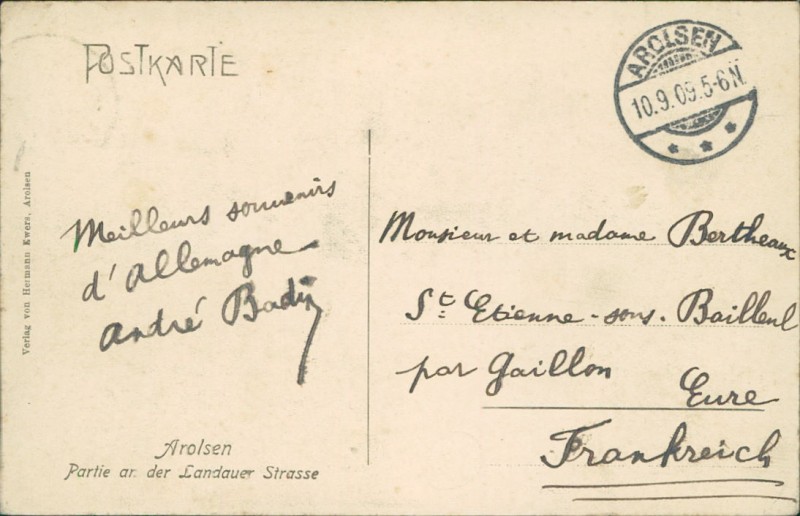 POSTKARTE
AROLSEN
10.9.09.5-6N.
Verlag von Hermann Kwers, Arolsen
Meilleurs souvenirs
d'Allemagne
André Badin
Monsieur et madame Bertheaux
St: Etienne-sous-Bailleul
par Gaillon
Eure
Frankreich
Arolsen
Partie an der Landauer Strasse